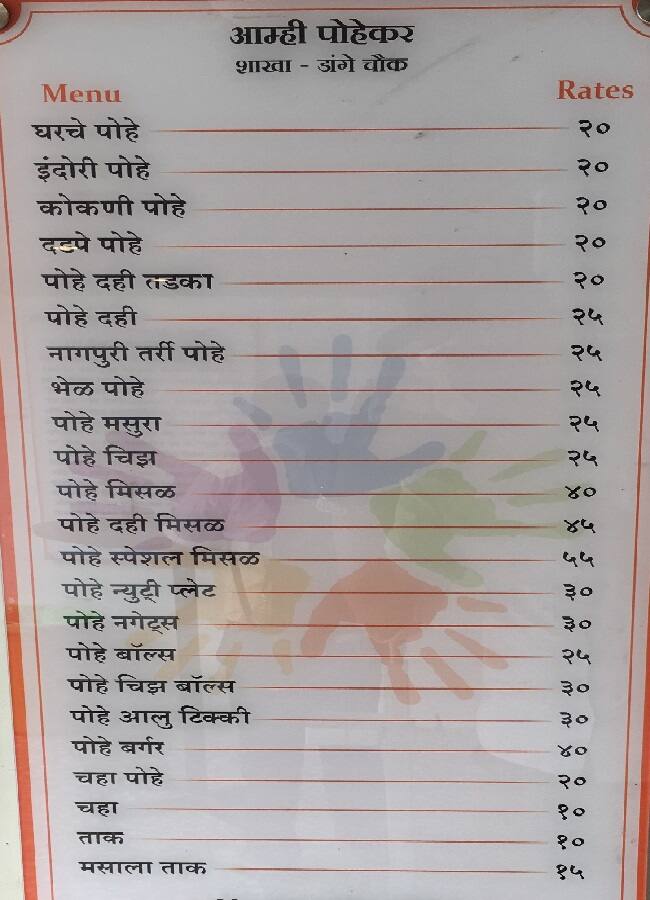 आम्ही पोहेकर
शाखा - डांगे चौक
Menu Rates
घरचे पोहे २०
इंदोरी पोहे २०
कोकणी पोहे २०
दडपे पोहे २०
पोहे दही तडका २०
पोहे दही २५
नागपुरी तर्री पोहे २५
भेळ पोहे २५
पोहे मसुरा २५
पोहे चिझ २५
पोहे मिसळ ४०
पोहे दही मिसळ ४५
पोहे स्पेशल मिसळ ५५
पोहे न्युट्री प्लेट ३०
पोहे नगेट्स ३०
पोहे बॉल्स २५
पोहे चिझ बॉल्स ३०
पोहे आलु टिक्की ३०
पोहे बर्गर ४०
चहा पोहे २०
चहा १०
ताक १०
मसाला ताक १५